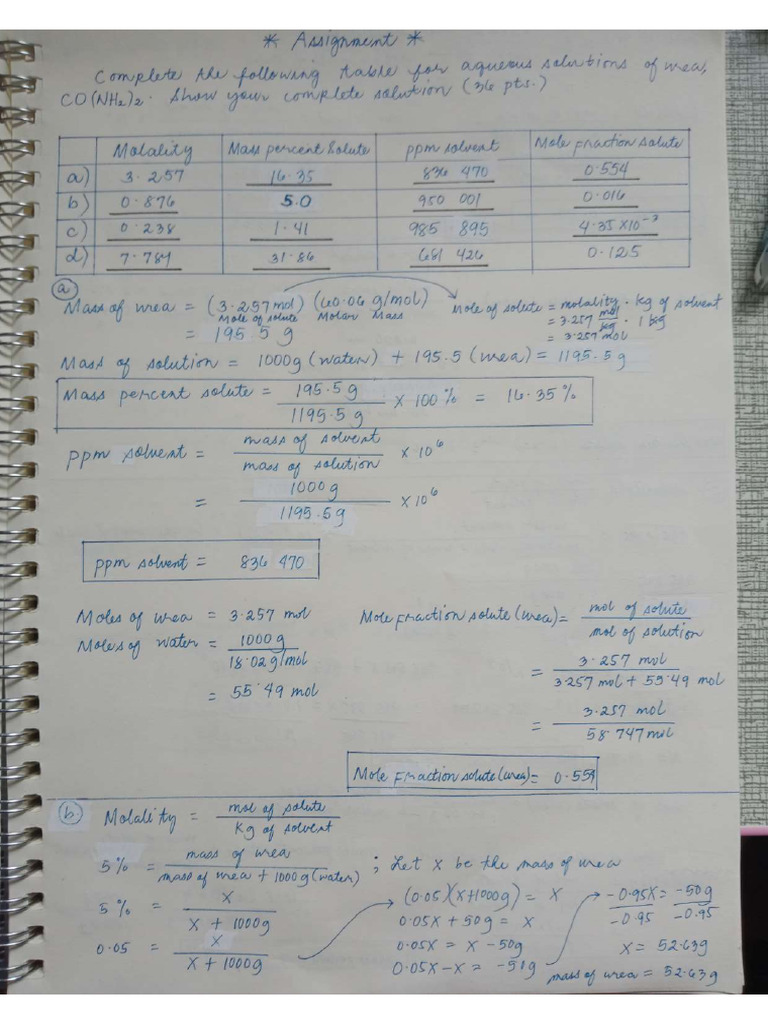 * Assignment *
Complete the following table for aqueous solutions of urea,
CO(NH2)2. Show your complete solution (36 pts.)
Molality Mass percent Solute ppm solvent Mole fraction solute
a) 3.257 16.35 836 470 0.554
b) 0.876 5.0 950 001 0.016
c) 0.238 1.41 985 895 4.35 x10⁻³
d) 7.789 31.86 681 426 0.125
a) Mass of urea = (3.257mol) (60.06 g/mol) Mole of solute = molality · kg of solvent
Mole of solute Molar Mass = 3.257 mol/kg · 1 kg
= 195.5 g = 3.257 mol
Mass of solution = 1000g (water) + 195.5 (urea) = 1195.5g
Mass percent solute = 195.5g / 1195.5g x 100% = 16.35%
ppm solvent = mass of solvent / mass of solution x 10⁶
= 1000g / 1195.5g x 10⁶
ppm solvent = 836 470
Moles of urea = 3.257 mol Mole fraction solute (urea) = mol of solute / mol of solution
Moles of water = 1000g / 18.02g/mol = 3.257 mol / 3.257 mol + 55.49 mol
= 55.49 mol = 3.257 mol / 58.747 mol
Mole Fraction solute (urea) = 0.554
b. Molality = mol of solute / Kg of solvent
5% = mass of urea / mass of urea + 1000g (water) ; Let x be the mass of urea
5% = x / x + 1000g (0.05)(x+1000g) = x -0.95x / -0.95 = -50g / -0.95
0.05x + 50g = x
0.05 = x / x + 1000g 0.05x = x - 50g x = 52.63g
0.05x - x = -50g mass of urea = 52.63g